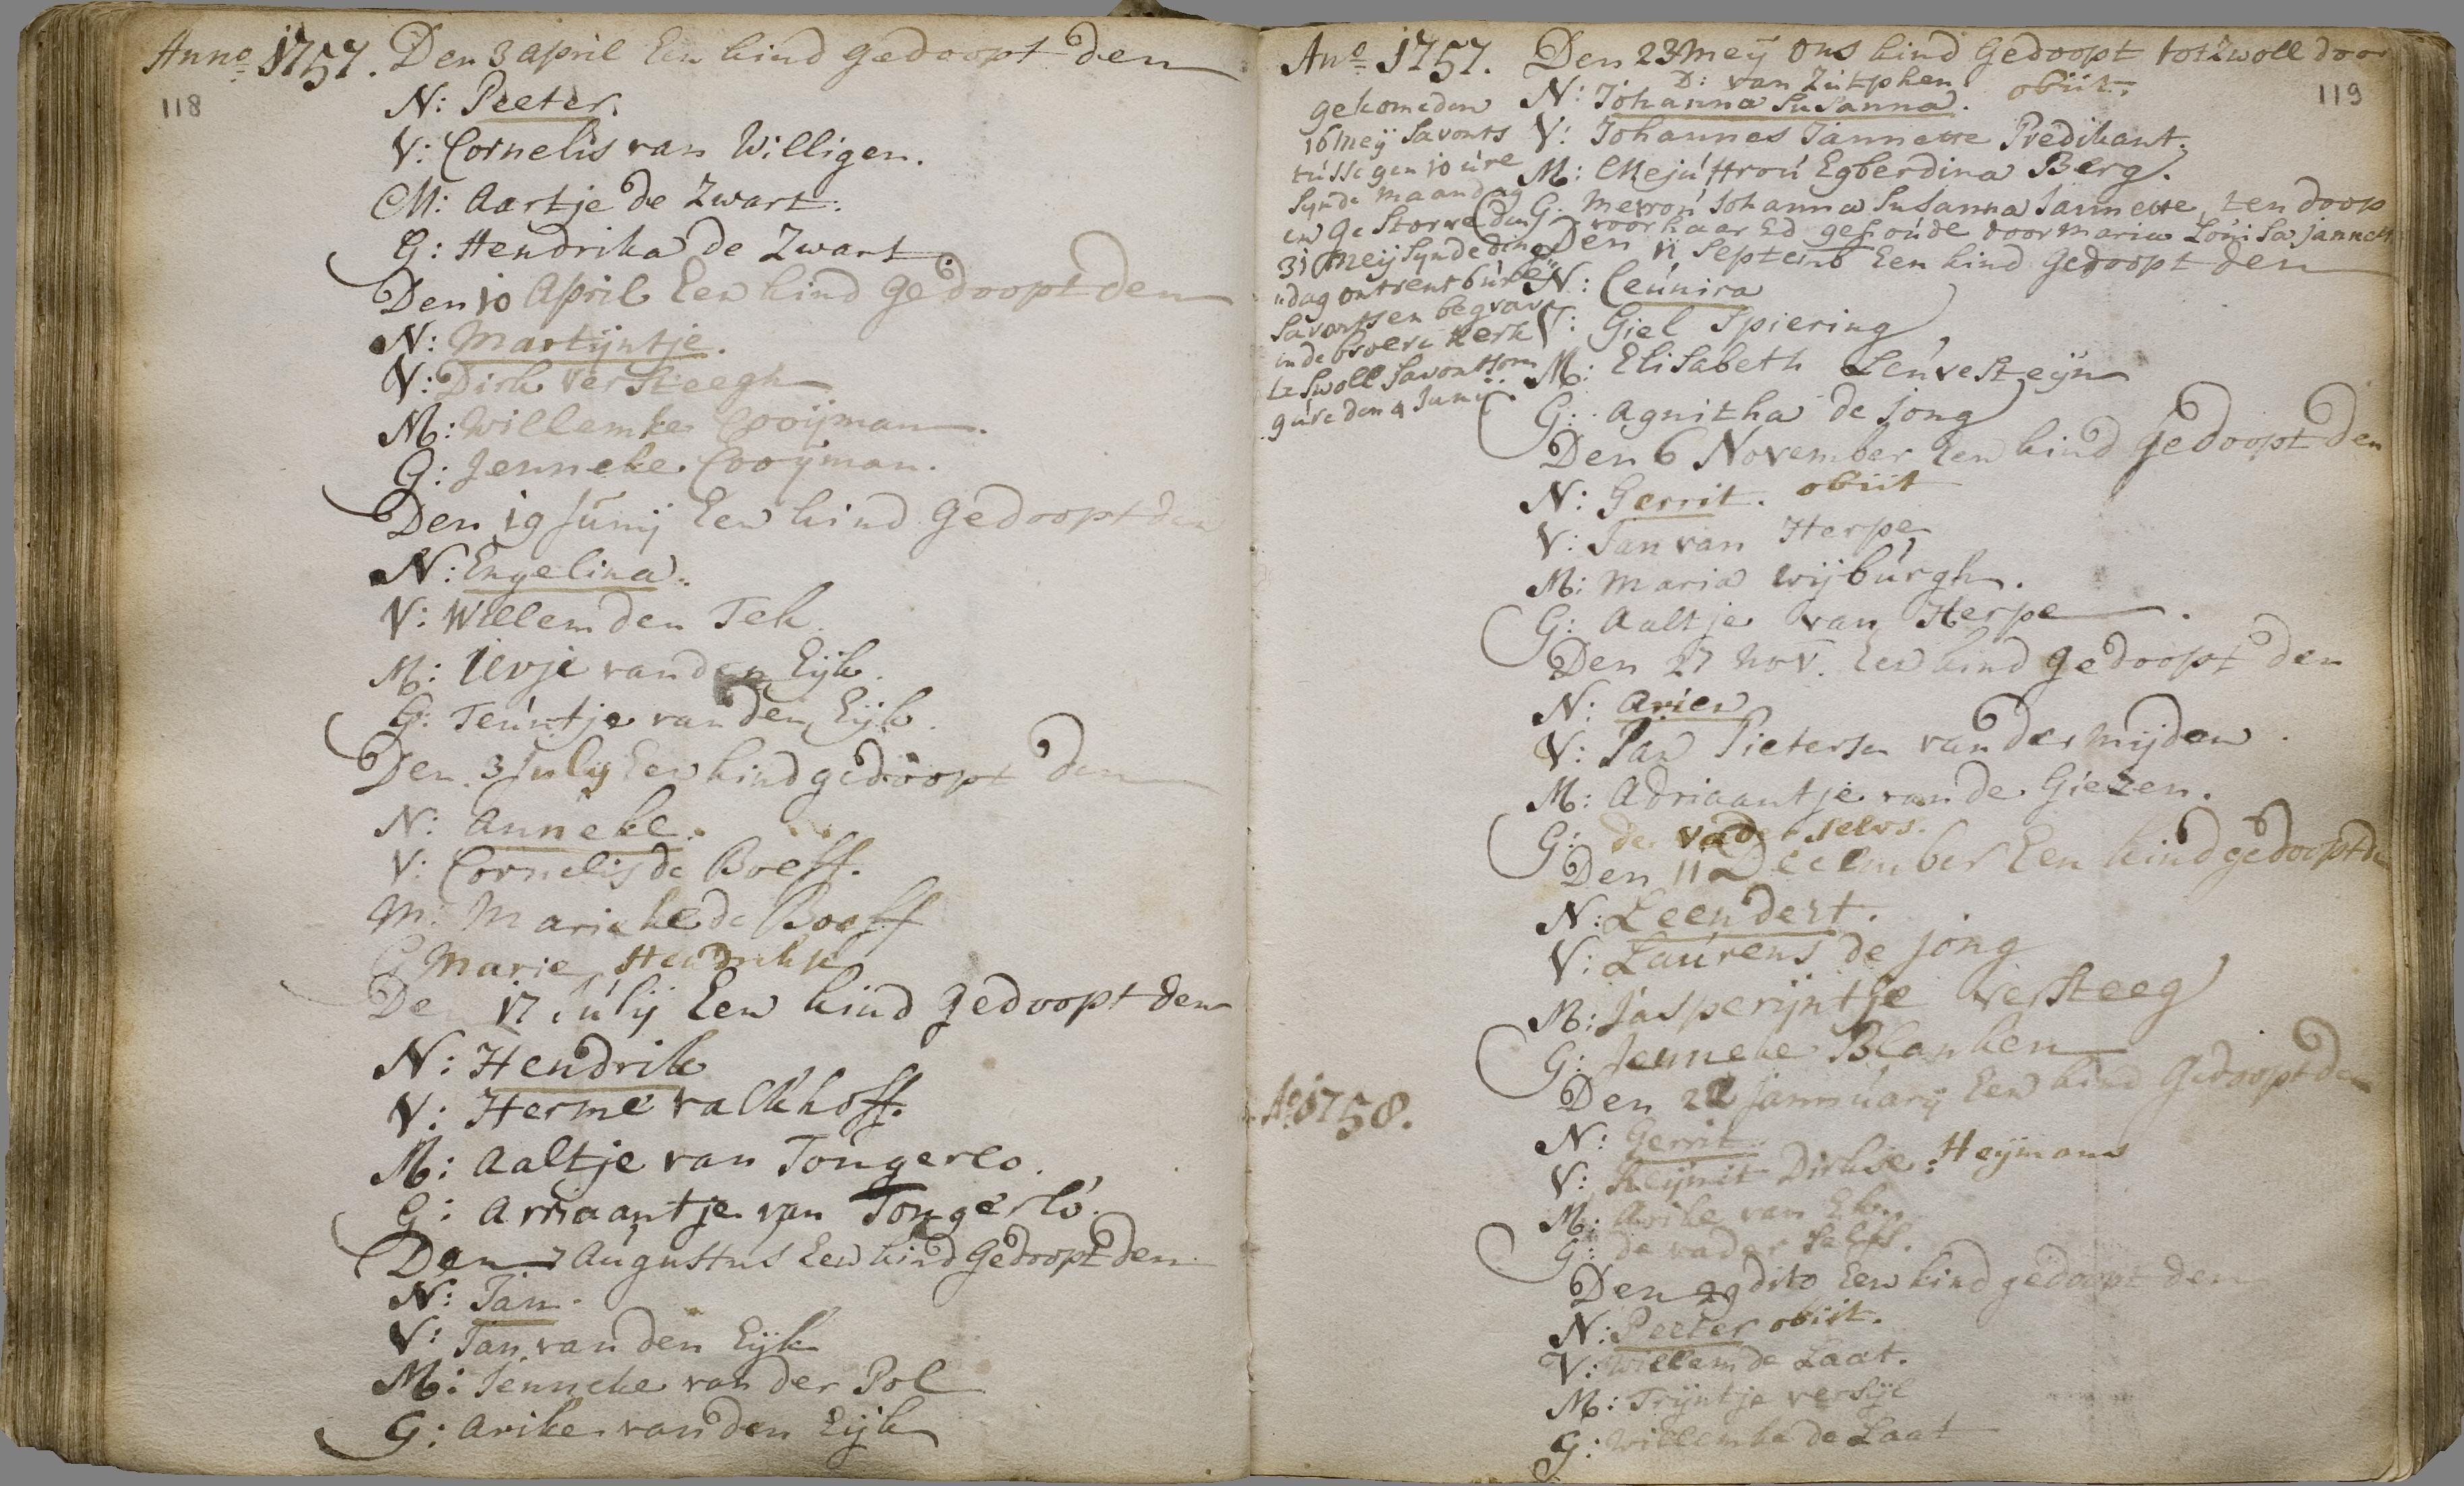 Anno 1757. Den 3 april Een kind gedoopt den
118
N: Peeter.
V: Cornelis van Willigen.
M: Aartje de Zwart.
G: Hendrika de Zwart.
Den 10 April Een kind gedoopt den
N: Martÿntje.
V: Dirk versteegh
M: Willemke Cooÿman.
G: Jenneke Cooÿman.
Den 19 Junij Een kind gedoopt den
N: Engelina.
V: Willem den Tek
M: van den Eÿk.
G: Teúntje van den Eÿk.
Den 3 July Een kind gedoopt den
N: Anneke.
V: Cornelis de Boeff.
M: Marieke de Boeff
G Marie Hendrikse
Den 17 Julij Een kind gedoopt den
N: Hendrik
V: Herme valkhoff.
M: Aaltje van Tongerlo.
G: Arriaantje van Tongerlo.
Den 7 Augustus Een kind Gedoopt den
N: Jan.
V: Jan van den Eÿk
M: Jenneke van der Pol
G: Arike van den Eÿk
Ano 1757. Den 23 Meÿ Ons kind Gedoopt tot Zwoll door
D: van Zútphen
119
N: Johanna Susanna. obiit.
V: Johannes Jannette Predikant.
M: Mejúffroú Egberdina Berg.
G: Mevroú Johanna Susanna Jannette, ten doop
voor haar Ed geh oúde door Maria Loúisa Jannette
gekomen den
16 Meij savonts
tússe 9 en 10 úre
Synde Maandag
en Gestorve den
31 Meij Synde dings
dag ontrent 6 úre
savonts en begrave
in de broere Kerk
te Swoll savonts om
9 úre den 4 Junii.
Den 11 Septemb Een kind Gedoopt den
N: Ceúnira
V: Giel Spiering
M: Elisabeth Leúvesteÿn
G: Agnitha de Jong
Den 6 November Een kind Gedoopt den
N: Gerrit. obiit
V: Jan van Herpe
M: Maria wijbúrgh.
G: Aaltje van Herpe.
Den 27 Nov. Een kind gedoopt den
N: Arien
V: Jan Pieterse van der Mijden.
M: Adriaantje van de Giezen.
G: de vader selvs.
Den 11 December Een kind gedoopt den
N: Leendert.
V: Laúrens de Jong
M: Jasperijntje versteeg
G: Jenneke Blanken
Ao 1758.
Den 22 Jannúarij Een kind Gedoopt den
N: Gerrit.
V: Reijnit Dirkse: Heÿmans
M: Arike van
G: de vader selfs.
Den 29 dito Een kind gedoopt den
N: Peeter obiit.
V: Willem de Laat.
M: Trijntje
G: Willemke de Laat